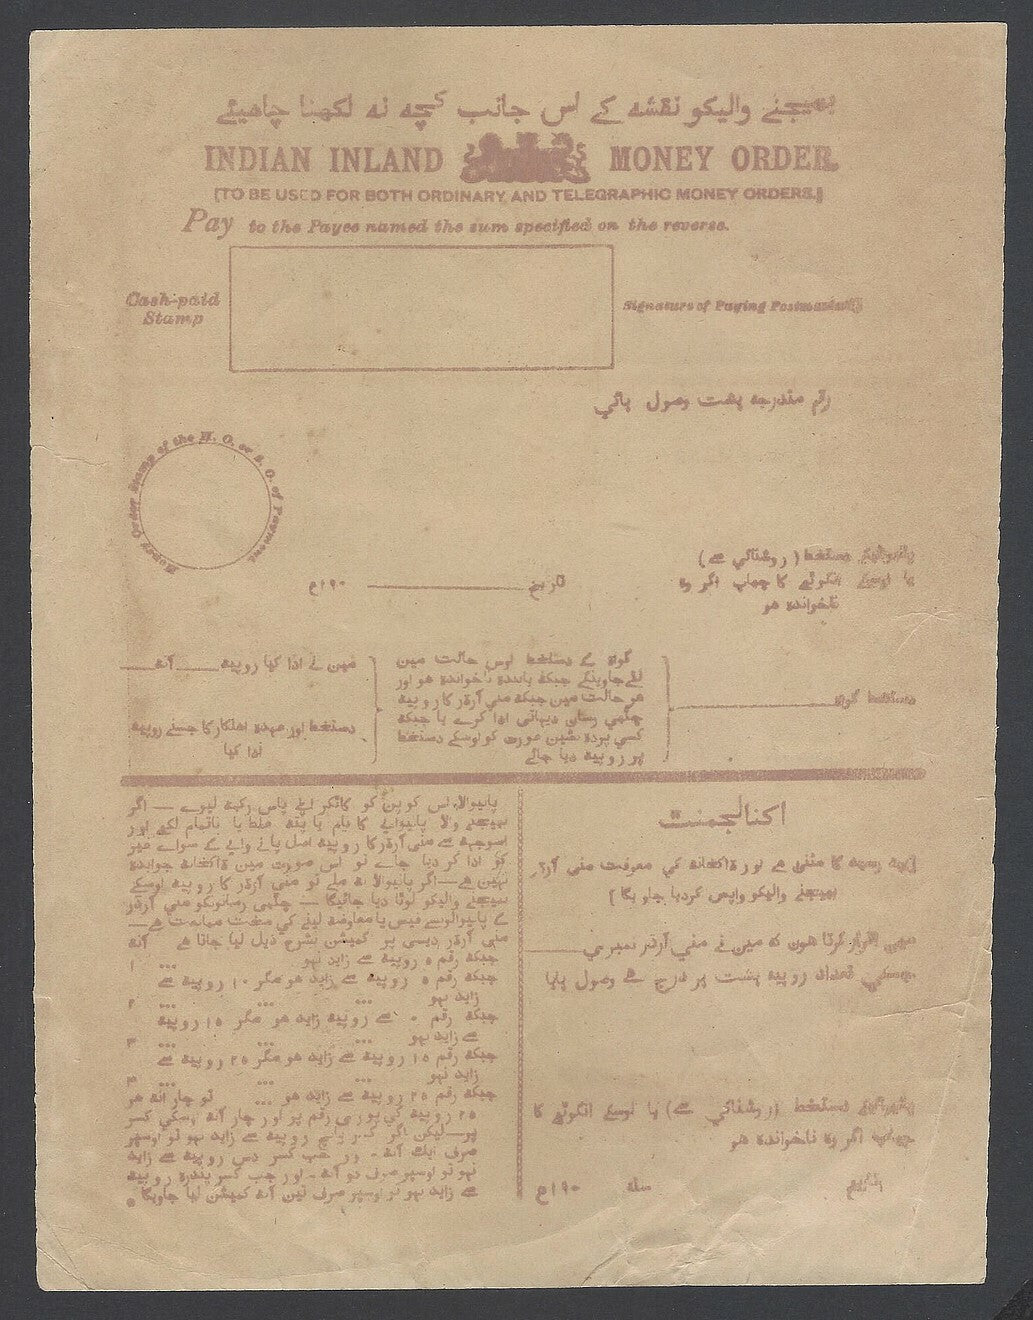 بھیجنے والیکو نقشہ کے اس جانب کچھ نہ لکھنا چاھیئے
INDIAN INLAND MONEY ORDER.
(TO BE USED FOR BOTH ORDINARY AND TELEGRAPHIC MONEY ORDERS.)
Pay to the Payee named the sum specified on the reverse.
Cash-paid
Stamp
Signature of Paying Postmaster
رقم مندرجہ پشت وصول پائي
Money Order Stamp of the H. O. or S. O. of Payment
دستخط ( روشنائي سے )
یا اوسکے انگوٹھے کا چھاپ اگر وہ
ناخواندہ هو
تاریخ ۱۹۰ع
گواہ کے دستخط اوس حالت مین
لئے جاوینگے جبکہ پانندہ ناخواندہ هو اور
هر حالت مین جبکہ مني آرڈر کا روپیہ
چٹھي رسان دیہاتي ادا کرے یا جبکہ
کسي پردہ نشین عورت کو اوسکے دستخط
پر روپیہ دیا جاے
دستخط گواہ
مین نے ادا کیا روپیہ آنہ
دستخط اور عہدہ اهلکار کا جسنے روپیہ
ادا کیا
پانیوالا اس کوپن کو کاٹکر اپنے پاس رکھہ لیوے — اگر
بھیجنے والا پانیوالے کا نام یا پتہ غلط یا ناتمام لکھے اور
اسوجہہ سے مني آرڈر کا روپیہ اصل پانے والے کے سواے غیر
کو ادا کر دیا جاے تو اس صورت مین ڈاکخانہ جوابدہ
نہین ہے — اگر پانیوالا نہ ملے تو مني آرڈر کا روپیہ اوسکے
بھیجنے والیکو لوٹا دیا جائیگا — چٹھي رسانونکو مني آرڈر
کے پانیوالوسے فیس یا معاوضہ لینے کي سخت ممانعت ہے —
مني آرڈر دیسي پر کمیشن بشرح ذیل لیا جاتا ہے آنہ
جبکہ رقم ۵ روپیہ سے زاید نہو ... ۱
جبکہ رقم ۵ روپیہ سے زاید هو مگر ۱۰ روپیہ سے
زاید نہو ... ... ... ۲
جبکہ رقم سے روپیہ زاید هو مگر ۱۵ روپیہ
سے زاید نہو ... ... ... ۳
جبکہ رقم ۱۵ روپیہ سے زاید هو مگر ۲۵ روپیہ سے
زاید نہو ... ... ...
جبکہ رقم ۲۵ روپیہ سے زاید هو ... تو چار آنہ هر
۲۵ روپیہ کي پوري رقم پر اور چار آنہ اوسکي کسر
پر — لیکن اگر کسر پانچ روپیہ سے زاید نہو تو اوسپر
صرف ایک آنہ - اور جب کسر دس روپیہ سے زاید
نہو تو اوسپر صرف دو آنہ - اور جب کسر پندرہ روپیہ
سے زاید نہو تو اوسپر صرف تین آنہ کمیشن لیا جاویگا
اکنالجمنٹ
رسید کا مثنی ہے اور ڈاکخانہ کي معرفت مني آرڈر
بھیجنے والیکو واپس کردیا جاویگا ]
مین اقرار کرتا هون کہ مین نے مني آرڈر نمبري
تعداد روپیہ پشت پر درج ہے وصول پایا
دستخط (روشنائي سے) یا اوسکے انگوٹھے کا
چھاپ اگر وہ ناخواندہ هو
تاریخ سنہ ۱۹۰ع